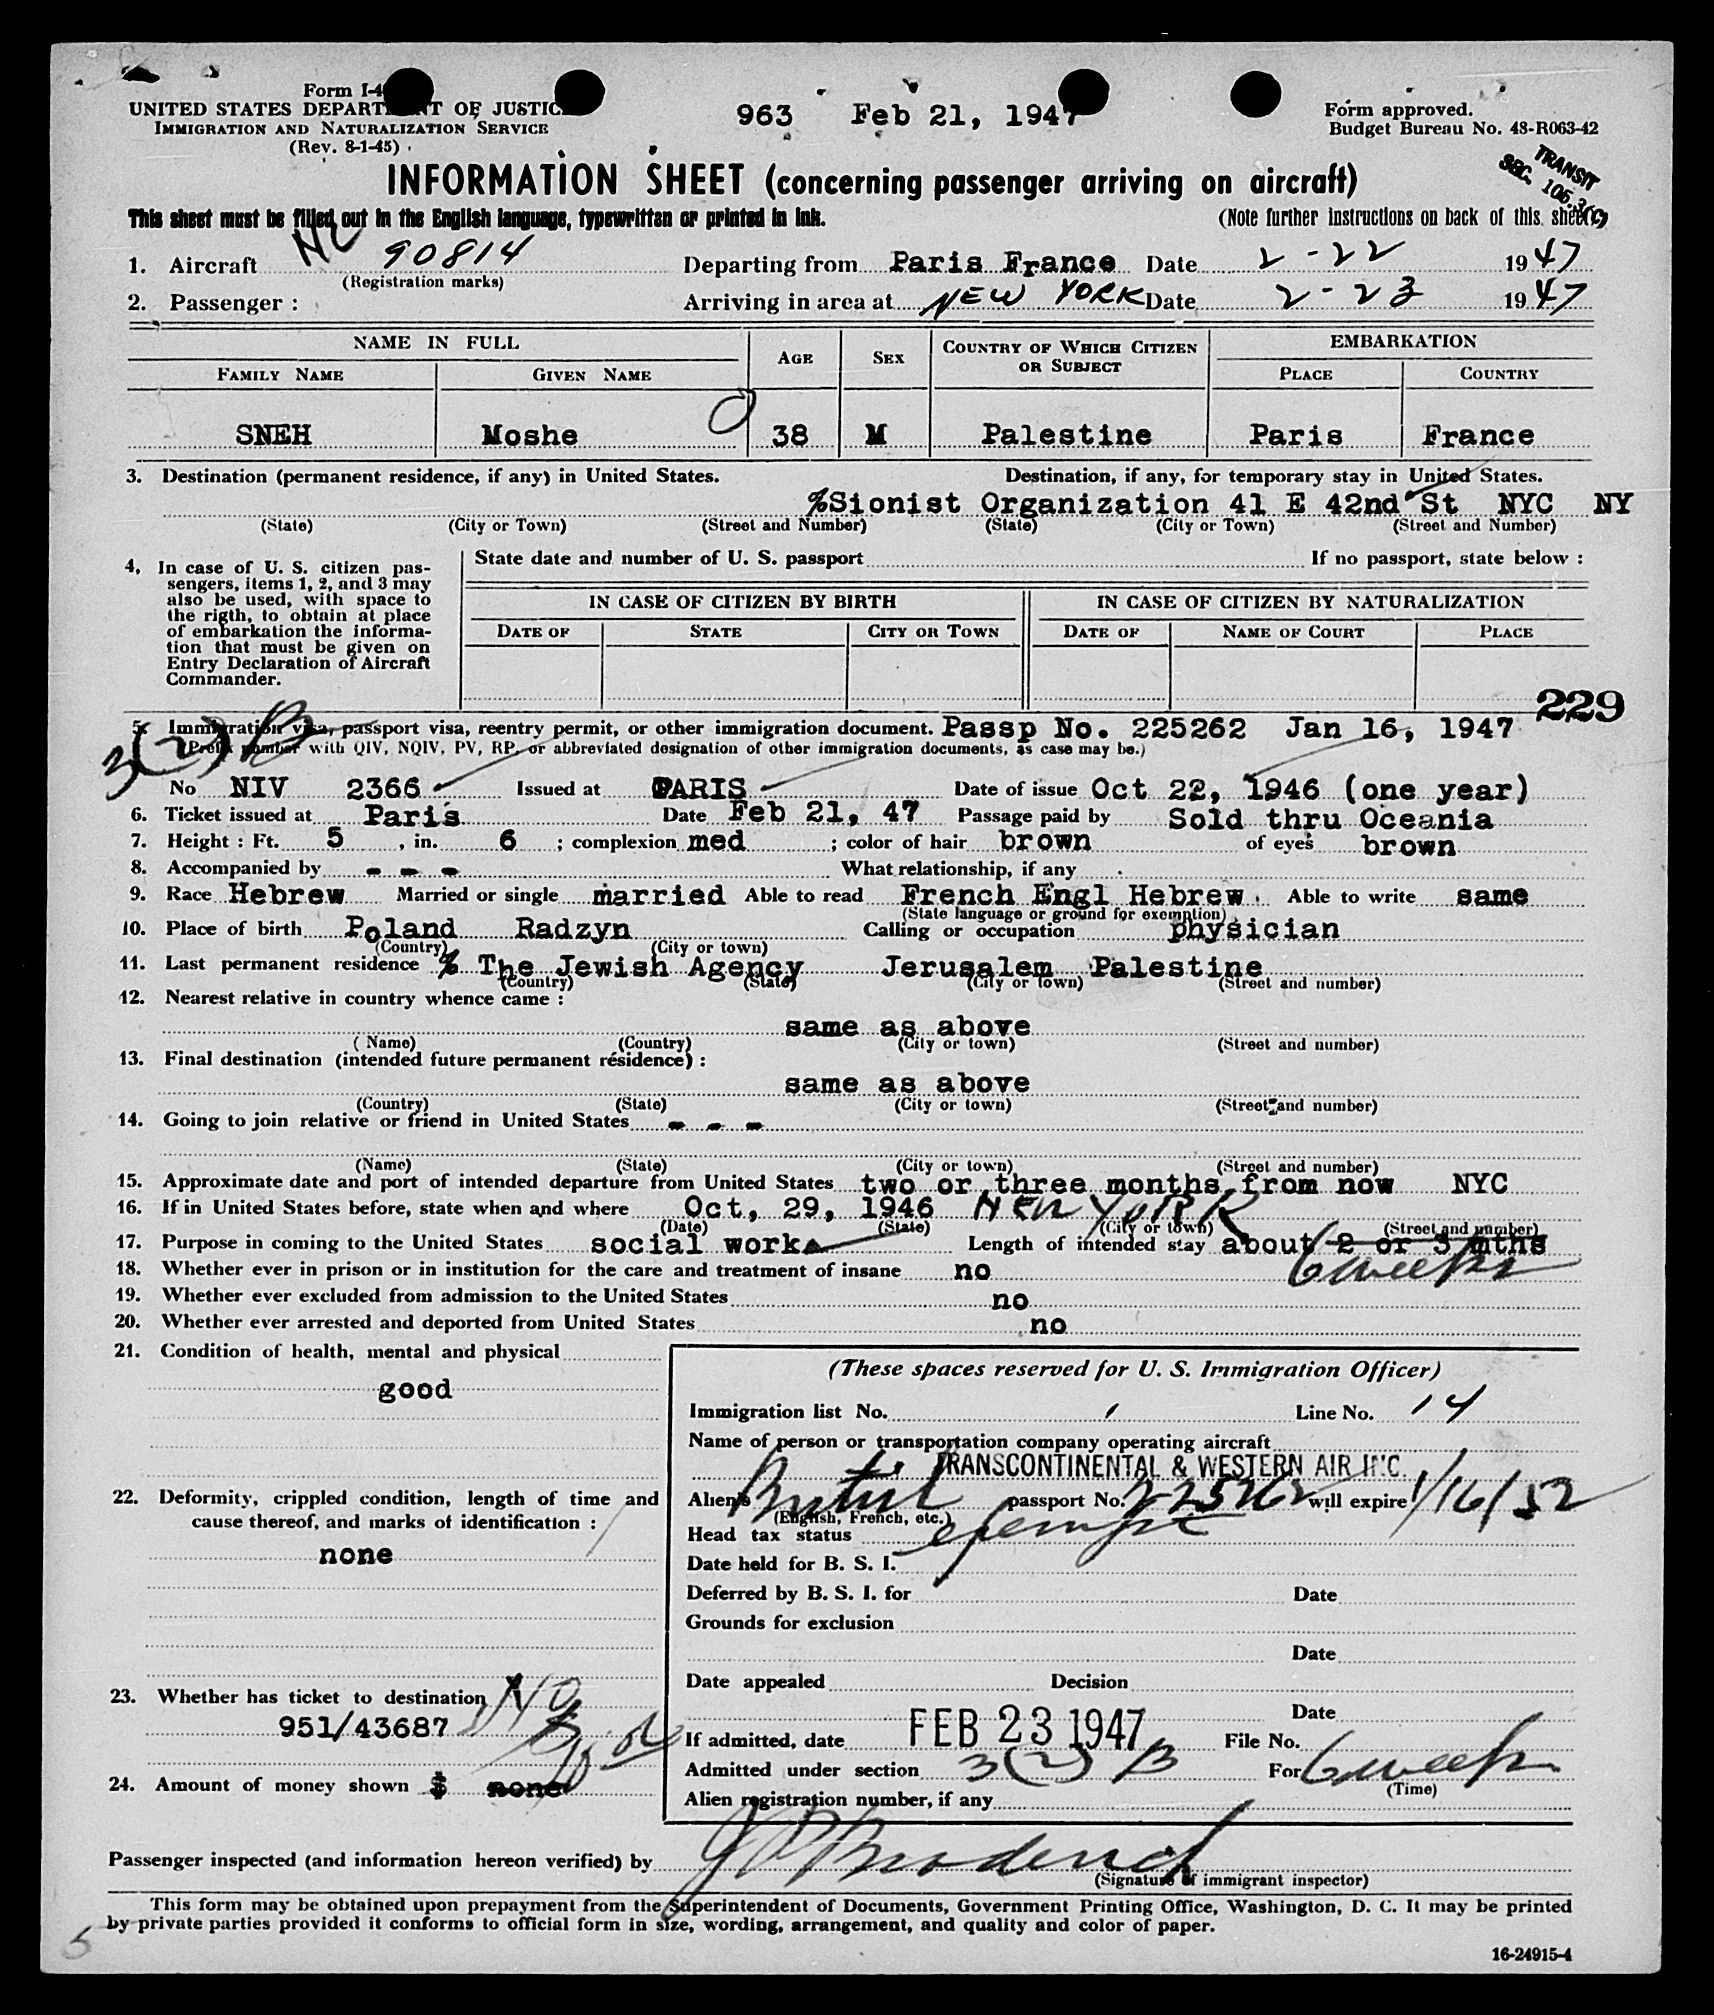 Form I-4
UNITED STATES DEPART T OF JUSTIC
IMMIGRATION AND NATURALIZATION SERVICE
(Rev. 8-1-45)
963 Feb 21, 1947
Form approved.
Budget Bureau No. 43-R063-42
TRANSIT
SEC. 106.3(c)
INFORMATION SHEET (concerning passenger arriving on aircraft)
This sheet must be filled out in the English language, typewritten or printed in ink.
(Note further instructions on back of this sheet.)
1. Aircraft NC 90814 Departing from Paris France Date 2-22 1947
(Registration marks)
2. Passenger : Arriving in area at NEW YORK Date 2-23 1947
NAME IN FULL AGE SEX COUNTRY OF WHICH CITIZEN OR SUBJECT EMBARKATION
FAMILY NAME GIVEN NAME PLACE COUNTRY
SNEH Moshe 38 M Palestine Paris France
3. Destination (permanent residence, if any) in United States. Destination, if any, for temporary stay in United States.
% Sionist Organization 41 E 42nd St NYC NY
(State) (City or Town) (Street and Number) (State) (City or Town) (Street and Number)
4. In case of U. S. citizen pas-
sengers, items 1, 2, and 3 may
also be used, with space to
the rigth, to obtain at place
of embarkation the informa-
tion that must be given on
Entry Declaration of Aircraft
Commander.
State date and number of U. S. passport If no passport, state below :
IN CASE OF CITIZEN BY BIRTH IN CASE OF CITIZEN BY NATURALIZATION
DATE OF STATE CITY OR TOWN DATE OF NAME OF COURT PLACE
229
5. Immigration visa, passport visa, reentry permit, or other immigration document. Passp No. 225262 Jan 16, 1947
3(2) B
(Prefix number with QIV, NQIV, PV, RP, or abbreviated designation of other immigration documents, as case may be.)
No NIV 2366 Issued at PARIS Date of issue Oct 22, 1946 (one year)
6. Ticket issued at Paris Date Feb 21, 47 Passage paid by Sold thru Oceania
7. Height : Ft. 5 , in. 6 ; complexion med ; color of hair brown of eyes brown
8. Accompanied by - - - What relationship, if any
9. Race Hebrew Married or single married Able to read French Engl Hebrew . Able to write same
(State language or ground for exemption)
10. Place of birth Poland Radzyn Calling or occupation physician
(Country) (City or town)
11. Last permanent residence % The Jewish Agency Jerusalem Palestine
(Country) (State) (City or town) (Street and number)
12. Nearest relative in country whence came :
same as above
( Name) (Country) (City or town) (Street and number)
13. Final destination (intended future permanent résidence) :
same as above
(Country) (State) (City or town) (Street and number)
14. Going to join relative or friend in United States - - -
(Name) (State) (City or town) (Street and number)
15. Approximate date and port of intended departure from United States two or three months from now NYC
16. If in United States before, state when and where Oct, 29, 1946 NEW YORK
(Date) (State) (City or town) (Street and number)
17. Purpose in coming to the United States social work. Length of intended stay about 2 or 3 mths
6 weeks
18. Whether ever in prison or in institution for the care and treatment of insane no
19. Whether ever excluded from admission to the United States no
20. Whether ever arrested and deported from United States no
21. Condition of health, mental and physical
good
22. Deformity, crippled condition, length of time and
cause thereof, and marks of identification :
none
23. Whether has ticket to destination No
951/43687
24. Amount of money shown $ none
(These spaces reserved for U. S. Immigration Officer)
Immigration list No. 1 Line No. 14
Name of person or transportation company operating aircraft
TRANSCONTINENTAL & WESTERN AIR INC.
Alien's British passport No. 225262 will expire 1/16/52
(English, French, etc.)
Head tax status exempt
Date held for B. S. I.
Deferred by B. S. I. for Date
Grounds for exclusion
Date
Date appealed Decision
Date
If admitted, date FEB 23 1947 File No.
Admitted under section 3(2) B For 6 weeks
(Time)
Alien registration number, if any
Passenger inspected (and information hereon verified) by
(Signature of immigrant inspector)
This form may be obtained upon prepayment from the Superintendent of Documents, Government Printing Office, Washington, D. C. It may be printed
by private parties provided it conforms to official form in size, wording, arrangement, and quality and color of paper.
5
16-24915-4